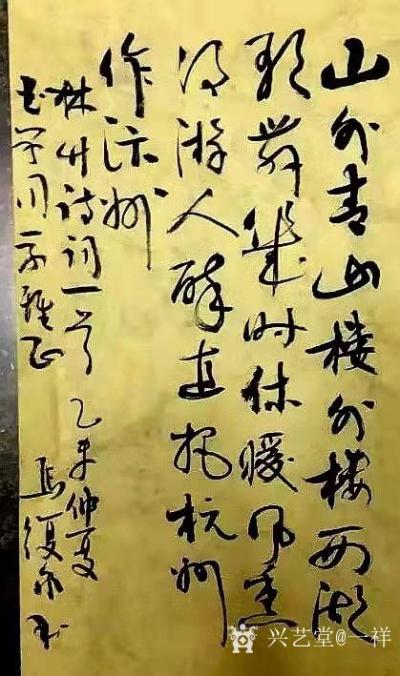 山外青山楼外楼西湖
歌舞幾时休暖风熏
得游人醉直把杭州
作汴州
林升诗词一首 乙未仲夏
雅正 马復 书
兴艺堂@一祥